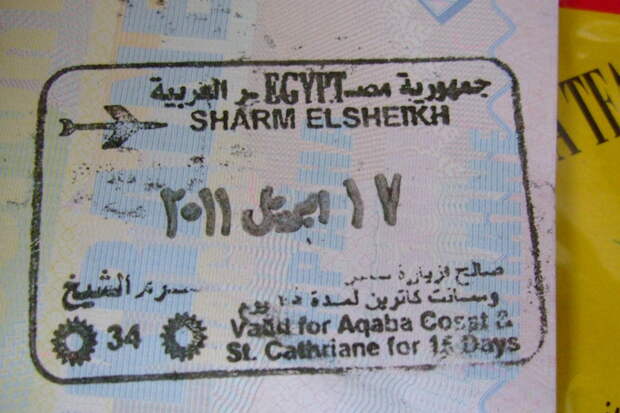 جمهورية مصر EGYPT العربية
SHARM ELSHEIKH
١٧ ابريل ٢٠١١
شرم الشيخ
34
صالح لزيارة
وسانت كاترين لمدة يوم
Valid for Aqaba Cosat &
St. Cathriane for 15 Days
ATE